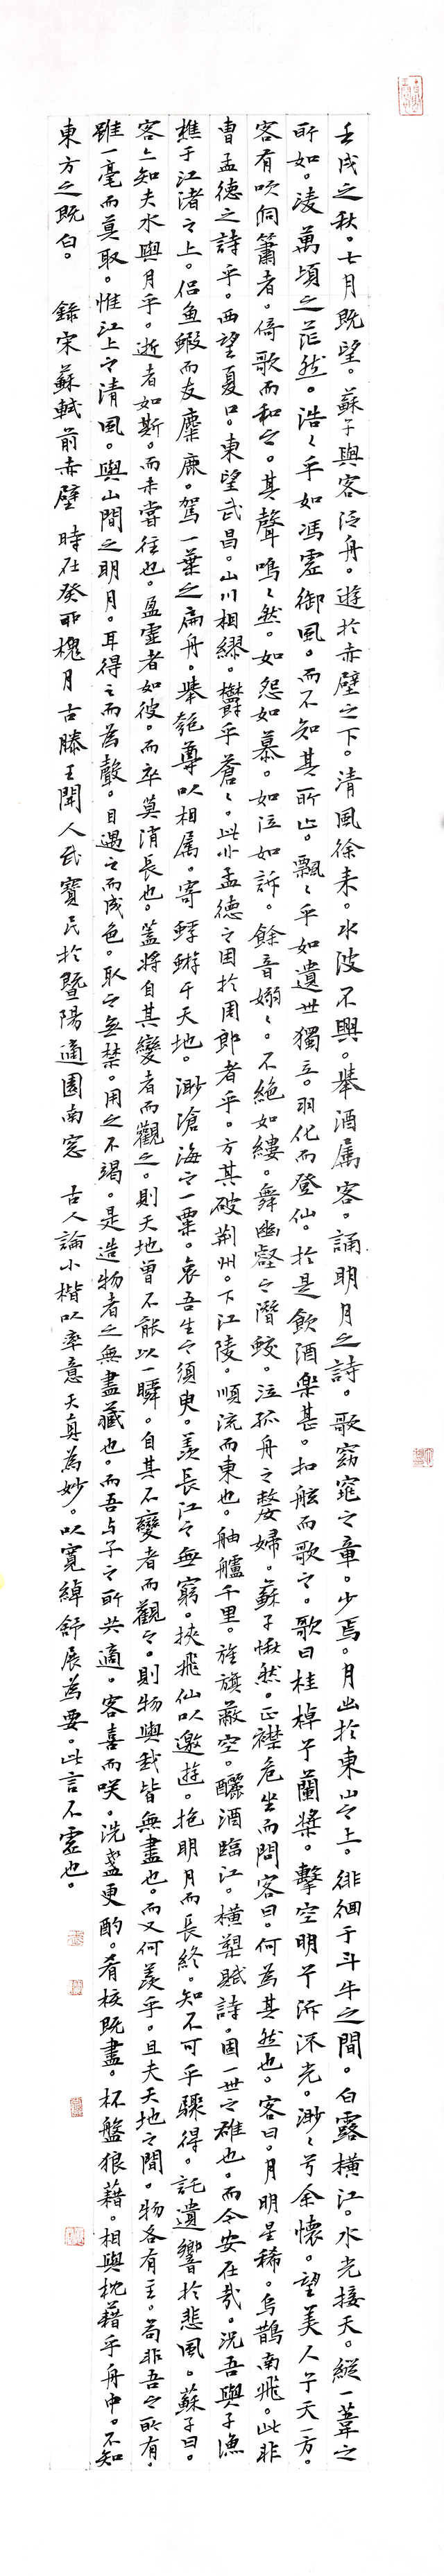 壬戌之秋。七月既望。蘇子與客泛舟。遊於赤壁之下。清風徐来。水波不興。舉酒属客。誦明月之詩。歌窈窕之章。少焉。月出於東山之上。徘徊于斗牛之間。白露橫江。水光接天。縱一葦之
所如。凌萬頃之茫然。浩〻乎如馮虛御風。而不知其所止。飄〻乎如遺世獨立。羽化而登仙。於是飲酒樂甚。扣舷而歌之。歌曰桂棹兮蘭槳。擊空明兮泝流光。渺〻兮余懷。望美人兮天一方。
客有吹洞簫者。倚歌而和之。其聲嗚〻然。如怨如慕。如泣如訴。餘音嫋〻。不絕如縷。舞幽壑之潛蛟。泣孤舟之嫠婦。蘇子愀然。正襟危坐而問客曰。何為其然也。客曰。月明星稀。烏鵲南飛。此非
曹孟德之詩乎。西望夏口。東望武昌。山川相繆。鬱乎蒼〻。此非孟德之困於周郎者乎。方其破荊州。下江陵。順流而東也。舳艫千里。旌旗蔽空。釃酒臨江。橫槊賦詩。固一世之雄也。而今安在哉。況吾與子漁
樵于江渚之上。侣鱼鰕而友麋鹿。駕一葉之扁舟。舉匏尊以相属。寄蜉蝣于天地。渺滄海之一粟。哀吾生之須臾。羨長江之無窮。挾飛仙以遨遊。抱明月而長終。知不可乎驟得。託遺響於悲風。蘇子曰。
客亦知夫水與月乎。逝者如斯。而未嘗往也。盈虛者如彼。而卒莫消長也。蓋將自其變者而觀之。則天地曾不能以一瞬。自其不變者而觀之。則物與我皆無盡也。而又何羨乎。且夫天地之間。物各有主。苟非吾之所有。
雖一毫而莫取。惟江上之清風。與山間之明月。耳得之而為聲。目遇之而成色。取之無禁。用之不竭。是造物者之無盡藏也。而吾与子之所共適。客喜而咲。洗盞更酌。肴核既盡。杯盤狼藉。相與枕藉乎舟中。不知
東方之既白。 錄宋蘇軾前赤壁 時在癸卯槐月古滕王開人武寶民於暨陽適園南窓 古人論小楷以率意天真為妙。以寬綽舒展為要。此言不虛也。